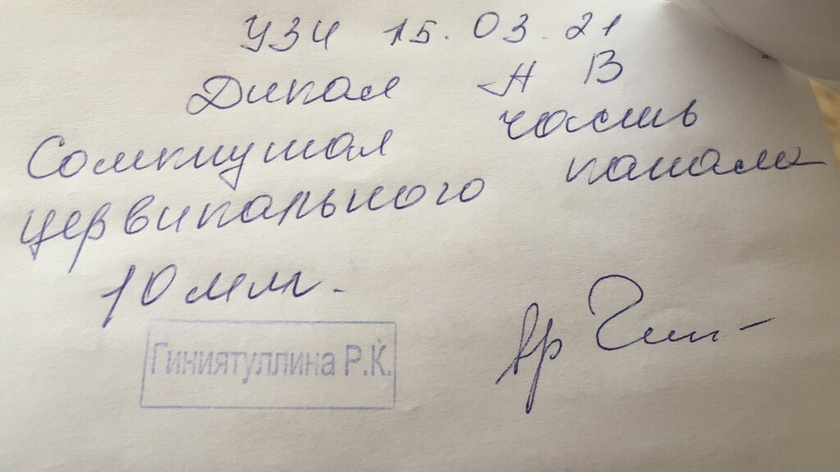 УЗИ 15.03.21
Дикая А В
Сомкнутая часть
цервикального канала
10 мм.
Гиниятуллина Р.К.
вр Гин-